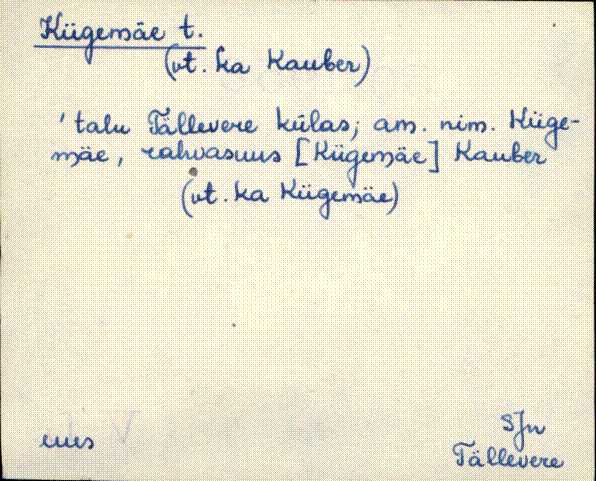 Kügemäe t.
(vt. ka Kauber)
'talu Tällevere külas; am. nim. Küge-
mäe, rahvasuus [Kügemäe] Kauber
(vt. ka Kügemäe)
uus
SJn
Tällevere